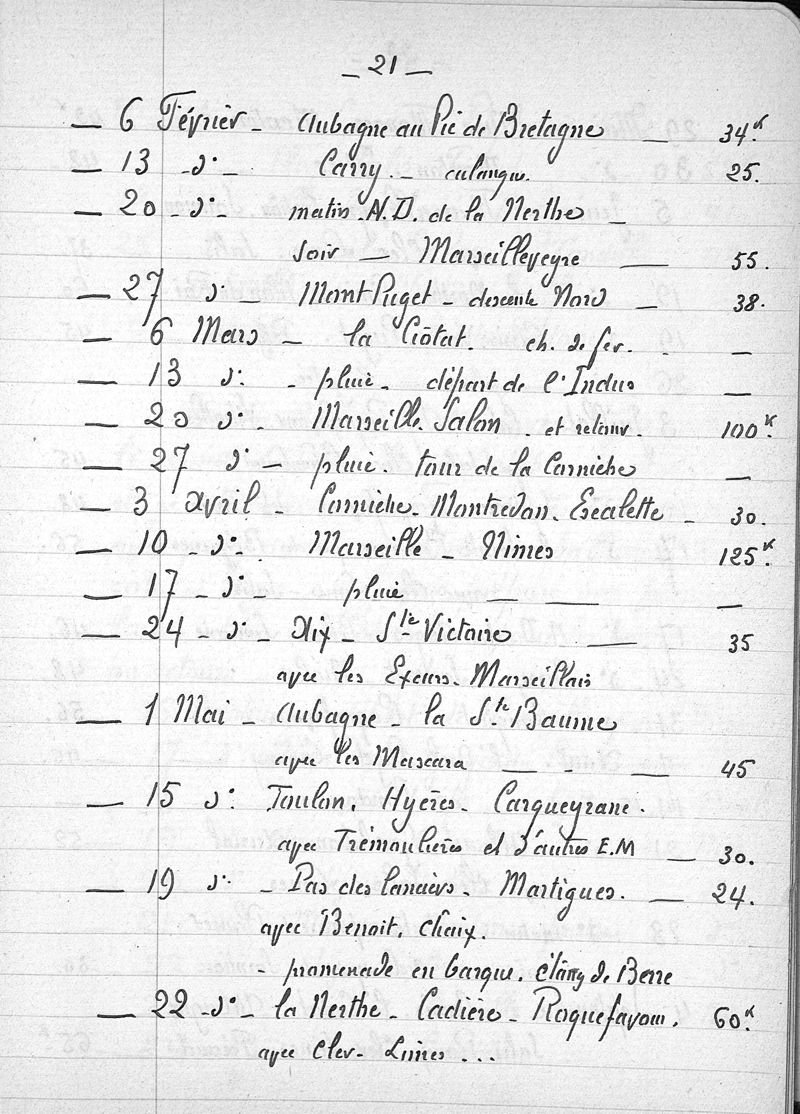 — 21 —
— 6 Février - Aubagne au Pic de Bretagne — 34.k
— 13 - d° - Carry. - calanque. 25.
— 20 - d° - matin. N.D. de la Nerthe -
soir — Marseilleveyre — 55.
— 27 d° - Mont Puget - descente Nord - 38.
— 6 Mars - la Ciôtat. ch. de fer. . —
— 13 d° - pluie - départ de l'Indus —
— 20 d° - Marseille. Salon . et retour. 100k.
— 27 d° - pluie. tour de la Corniche —
— 3 avril - Corniche. Montredon. Escalette - 30.
— 10 - d° - Marseille - Nimes 125k.
— 17 - d° - pluie — — —
— 24 - d° - Aix - Ste Victoire — 35
avec les Excurs. Marseillais
— 1 Mai - Aubagne - la Ste Baume
avec les Mascara — - — 45
— 15 d° Toulon. Hyères. Carqueyrane.
avec Trémoulières et d'autres E.M — 30.
— 19 d° - Pas des lanciers. Martigues. — 24.
avec Benoit, Chaix.
- promenade en barque. étang de Berre
— 22 - d° - la Nerthe - Cadière - Roquefavour. 60k.
avec Cler- ...